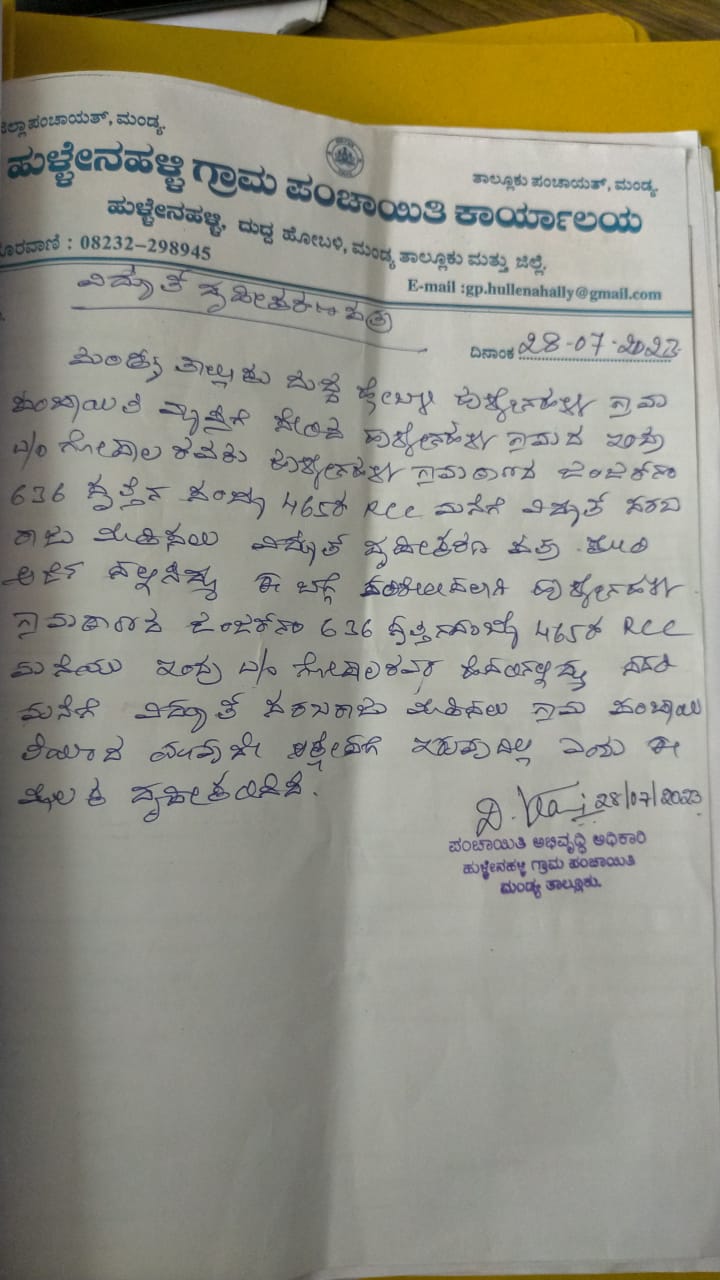 ಜಿಲ್ಲಾ ಪಂಚಾಯತ್, ಮಂಡ್ಯ.
ತಾಲ್ಲೂಕು ಪಂಚಾಯತ್, ಮಂಡ್ಯ.
ಹುಳ್ಳೇನಹಳ್ಳಿ ಗ್ರಾಮ ಪಂಚಾಯಿತಿ ಕಾರ್ಯಾಲಯ
ಹುಳ್ಳೇನಹಳ್ಳಿ, ದುದ್ದ ಹೋಬಳಿ, ಮಂಡ್ಯ ತಾಲ್ಲೂಕು ಮತ್ತು ಜಿಲ್ಲೆ.
ದೂರವಾಣಿ : 08232-298945
E-mail :gp.hullenahally@gmail.com
ವಿದ್ಯುತ್ ದೃಢೀಕರಣ ಪತ್ರ
ದಿನಾಂಕ 28-07-2023
ಮಂಡ್ಯ ತಾಲ್ಲೂಕು ದುದ್ದ ಹೋಬಳಿ ಹುಳ್ಳೇನಹಳ್ಳಿ ಗ್ರಾಮ
ಪಂಚಾಯಿತಿ ವ್ಯಾಪ್ತಿಗೆ ಸೇರಿದ ಹುಳ್ಳೇನಹಳ್ಳಿ ಗ್ರಾಮದ ಇಂದ್ರ
ಗೋಪಾಲ ರವರು ಹುಳ್ಳೇನಹಳ್ಳಿ ಗ್ರಾಮಠಾಣಾ
636 ಸ್ವತ್ತಿನ ಸಂಖ್ಯೆ 465ರ RCC ಮನೆಗೆ ವಿದ್ಯುತ್ ಸರಬ
ರಾಜು ವಿದ್ಯುತ್ ದೃಢೀಕರಣ ಪತ್ರ ಕೋರಿ
ಅರ್ಜಿ ಸಲ್ಲಿಸಿದ್ದು ಈ ಬಗ್ಗೆ ಪರಿಶೀಲಿಸಲಾಗಿ ಹುಳ್ಳೇನಹಳ್ಳಿ
ಗ್ರಾಮಠಾಣಾ 636 ಸ್ವತ್ತಿನಸಂಖ್ಯೆ 465ರ RCC
ಮನೆಯು ಇಂದ್ರ ಗೋಪಾಲರವರ ಹೆಸರಿನಲ್ಲಿದ್ದು ಸದರಿ
ಮನೆಗೆ ವಿದ್ಯುತ್ ಸರಬರಾಜು ಗ್ರಾಮ ಪಂಚಾಯಿ
ತಿಯಿಂದ ಯಾವುದೇ ಆಕ್ಷೇಪಣೆ ಇರುವುದಿಲ್ಲ ಎಂದು ಈ
ಮೂಲಕ ದೃಢೀಕರಿಸಿದೆ.
28/07/2023
ಪಂಚಾಯಿತಿ ಅಭಿವೃದ್ಧಿ ಅಧಿಕಾರಿ
ಹುಳ್ಳೇನಹಳ್ಳಿ ಗ್ರಾಮ ಪಂಚಾಯಿತಿ
ಮಂಡ್ಯ ತಾಲ್ಲೂಕು.